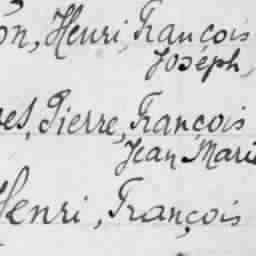 on, Henri, François
Joséph,
es, Pierre, François
Jean Marie
Henri, François